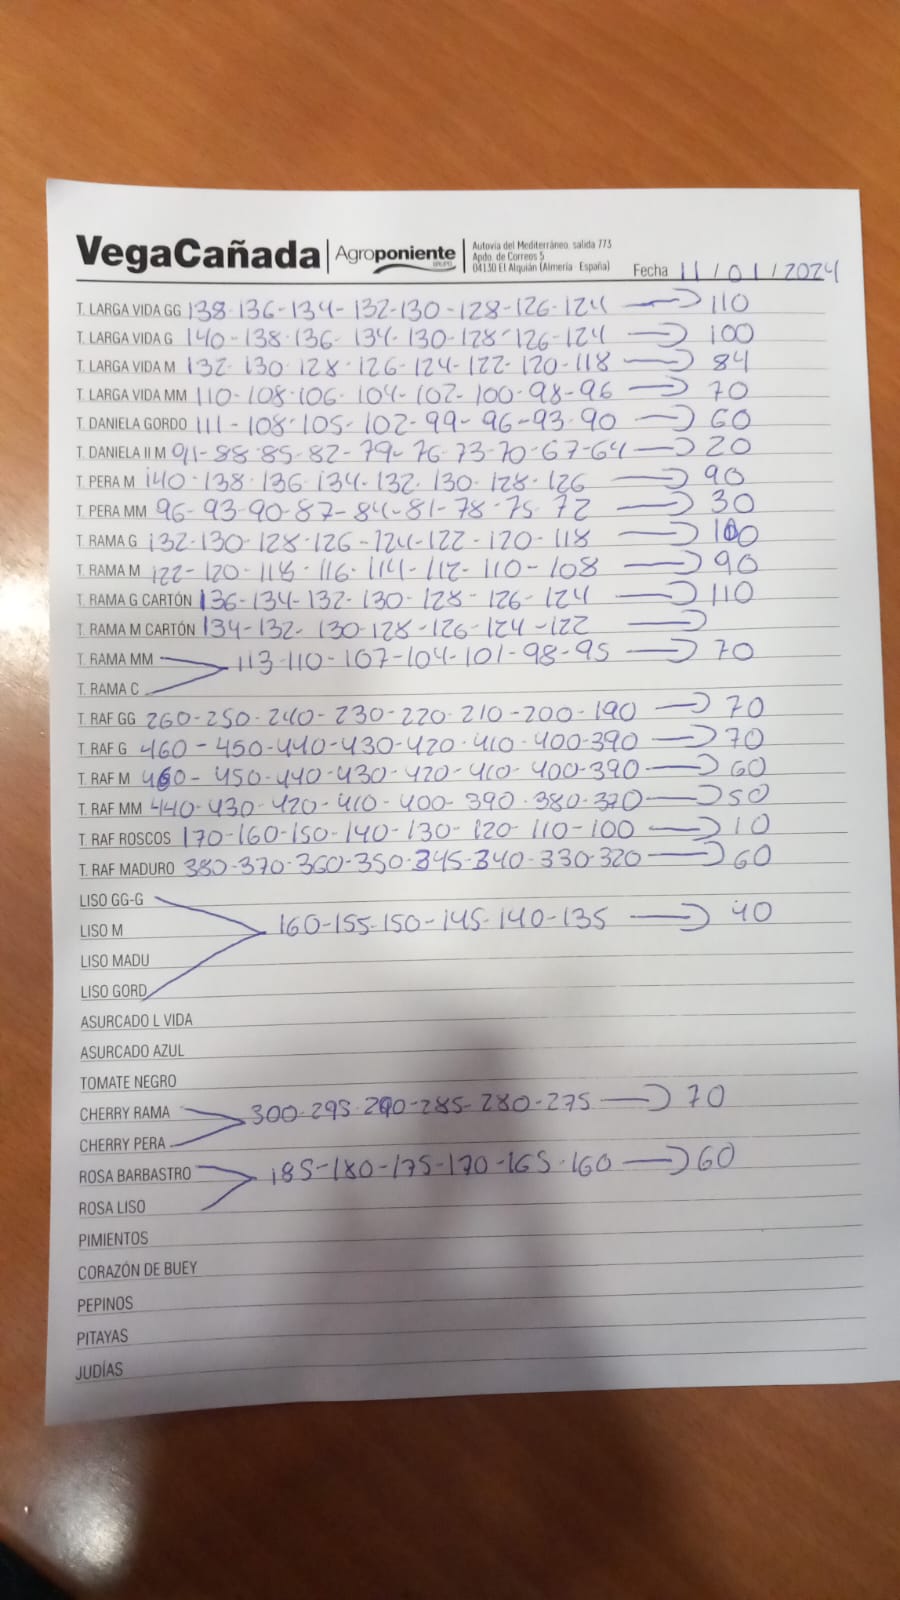 VegaCañada | Agroponiente GRUPO | Autovía del Mediterráneo, salida 773
Apdo. de Correos 5
04130 El Alquián (Almería - España)
Fecha 11/01/2024
T. LARGA VIDA GG 138-136-134-132-130-128-126-124 → 110
T. LARGA VIDA G 140-138-136-134-130-128-126-124 → 100
T. LARGA VIDA M 132-130-128-126-124-122-120-118 → 84
T. LARGA VIDA MM 110-108-106-104-102-100-98-96 → 70
T. DANIELA GORDO 111-108-105-102-99-96-93-90 → 60
T. DANIELA II M 91-88-85-82-79-76-73-70-67-64 → 20
T. PERA M 140-138-136-134-132-130-128-126 → 90
T. PERA MM 96-93-90-87-84-81-78-75-72 → 30
T. RAMA G 132-130-128-126-124-122-120-118 → 100
T. RAMA M 122-120-118-116-114-112-110-108 → 90
T. RAMA G CARTÓN 136-134-132-130-128-126-124 → 110
T. RAMA M CARTÓN 134-132-130-128-126-124-122 →
T. RAMA MM 113-110-107-104-101-98-95 → 70
T. RAMA C
T. RAF GG 260-250-240-230-220-210-200-190 → 70
T. RAF G 460-450-440-430-420-410-400-390 → 70
T. RAF M 460-450-440-430-420-410-400-390 → 60
T. RAF MM 440-430-420-410-400-390-380-370 → 50
T. RAF ROSCOS 170-160-150-140-130-120-110-100 → 10
T. RAF MADURO 380-370-360-350-345-340-330-320 → 60
LISO GG-G
LISO M 160-155-150-145-140-135 → 40
LISO MADU
LISO GORD
ASURCADO L VIDA
ASURCADO AZUL
TOMATE NEGRO
CHERRY RAMA 300-295-290-285-280-275 → 70
CHERRY PERA
ROSA BARBASTRO 185-180-175-170-165-160 → 60
ROSA LISO
PIMIENTOS
CORAZÓN DE BUEY
PEPINOS
PITAYAS
JUDÍAS